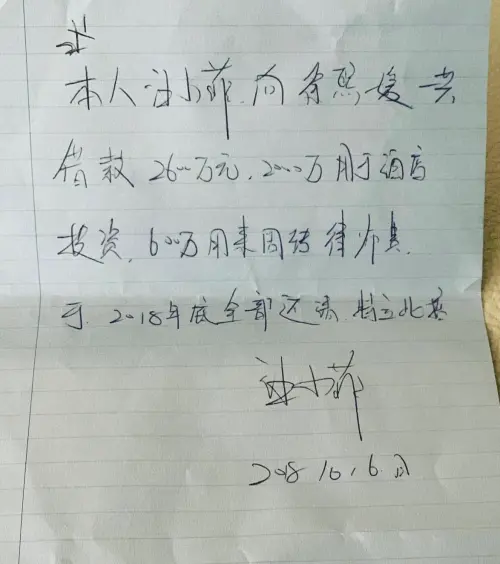 本人汪小菲.向徐熙媛共
借款2600万元,2000万用于酒店
投资,600万用来周转律师费.
于.2018年底全部还清.特立此
汪小菲
2018.10.6.